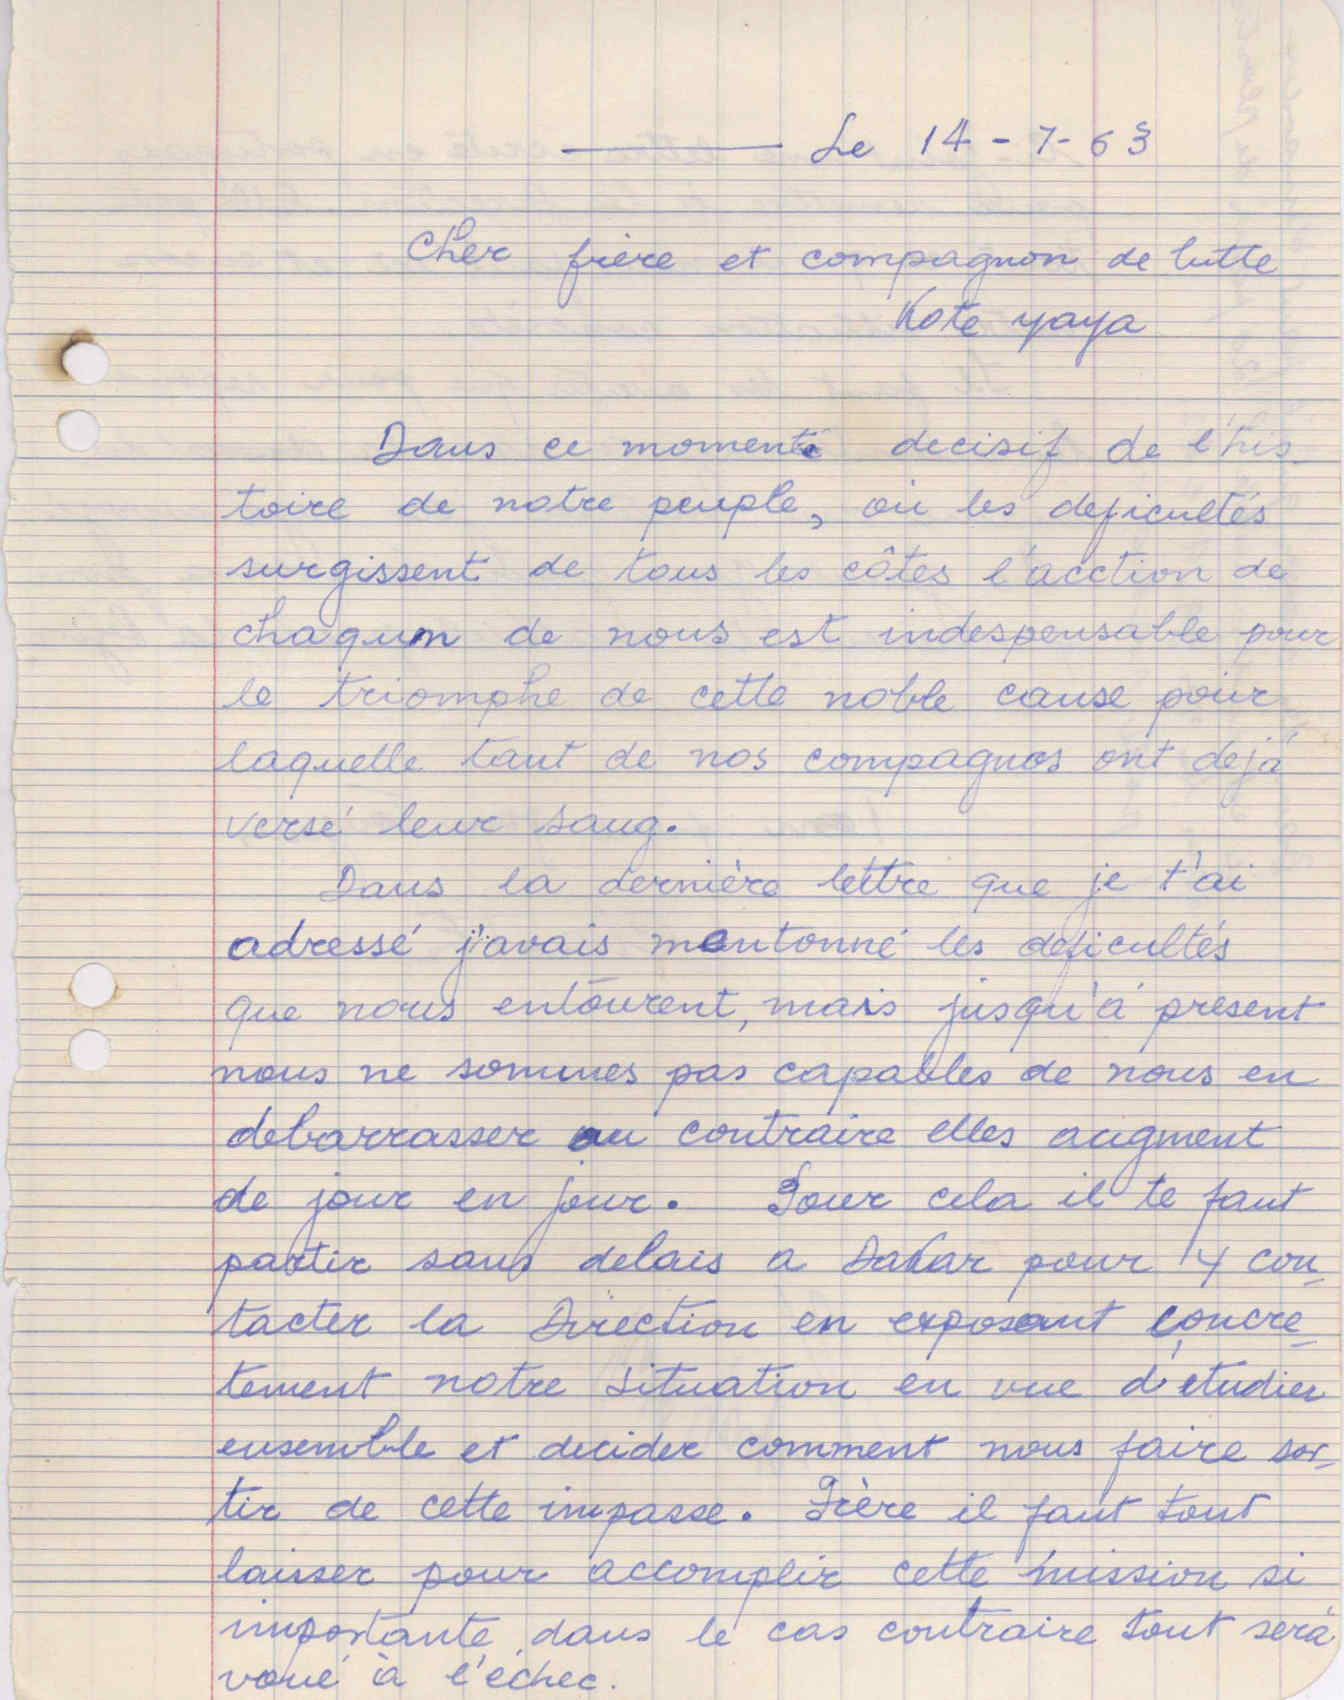 Le 14-7-63
Cher frère et compagnon de lutte
Kote yaya
Dans ce moment decisif de l'his
toire de notre peuple, où les deficultés
surgissent de tous les côtes l'acction de
chaqum de nous est indespensable pour
le triomphe de cette noble cause pour
laquelle tant de nos compagnos ont dejá
versé leur sang.
Dans la dernière lettre que je t'ai
adressé j'avais mentonné les deficultés
que nous entourent, mais jusqu'á present
nous ne sommes pas capables de nous en
debarrasser au contraire elles augment
de jour en jour. Pour cela il te faut
partir sans delais a Dakar pour y con_
tacter la Direction en exposant concre_
tement notre situation en vue d'etudier
ensemble et decider comment nous faire sor_
tir de cette impasse. Frère il faut tout
laisser pour accomplir cette mission si
importante, dans le cas contraire tout será
voué à l'échec.